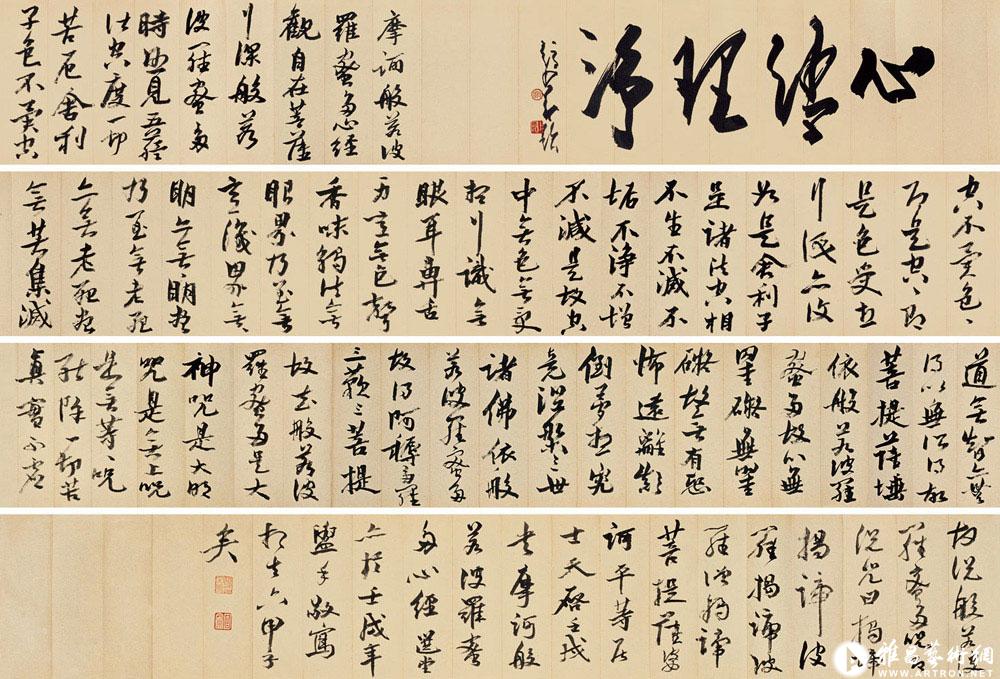 心
理淨
摩訶般若波
羅蜜多心經
觀自在菩薩
行深般若
波羅蜜多
時照見五蘊
皆空度一切
苦厄舍利
子色不異空
空不異色、
即是空、即
是色受想
行識亦復
如是舍利子
是諸法空相
不生不滅不
垢不淨不增
不減是故空
中無色無受
想行識無
眼耳鼻舌
身意無色聲
香味觸法無
眼界乃至無
意識界無
明無無明盡
乃至無老死
亦無老死盡
無苦集滅
道無智亦無
得以無所得故
菩提薩埵
依般若波羅
蜜多故心無
罣礙無罣
礙故無有恐
怖遠離顛
倒夢想究
竟涅槃三世
諸佛依般
若波羅蜜多
故得阿耨多羅
三藐三菩提
故知般若波
羅蜜多是大
神咒是大明
咒是無上咒
是無等等咒
能除一切苦
真實不虛
故說般若波
羅蜜多咒即
說咒曰揭諦
揭諦波
羅揭諦波
羅僧揭諦
菩提薩婆
訶平等居
士天啓壬戌
書摩訶般
若波羅蜜
多心經選堂
亦於壬戌年
盥手敬寫
相去六甲子
矣
雅昌藝術網
WWW.ARTRON.NET